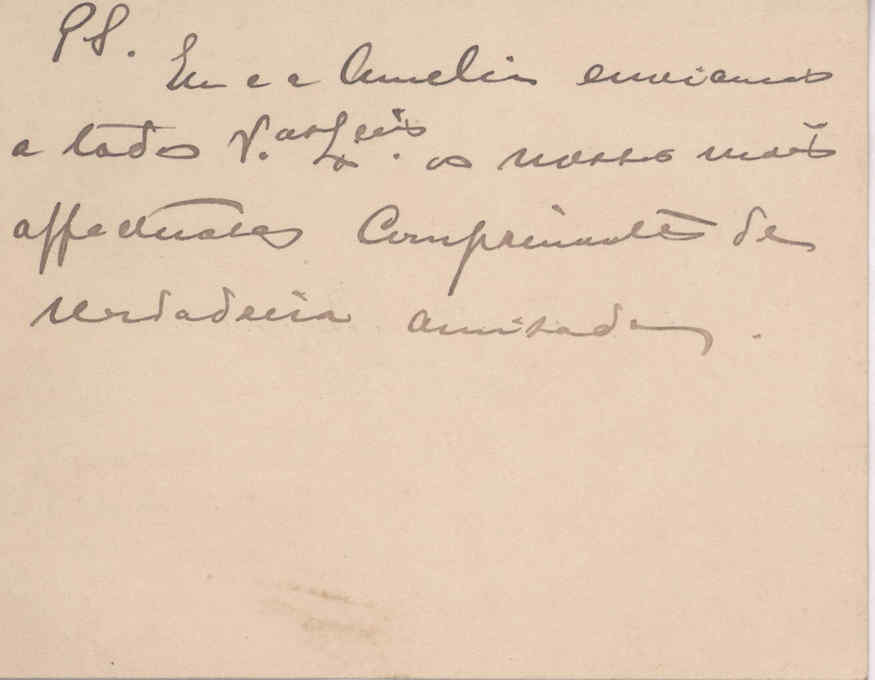 PS.
Eu e a Amelia enviamos
a todos V. as Ex.cias os nossos mais
affectuosos Comprimentos de
verdadeira amisade.